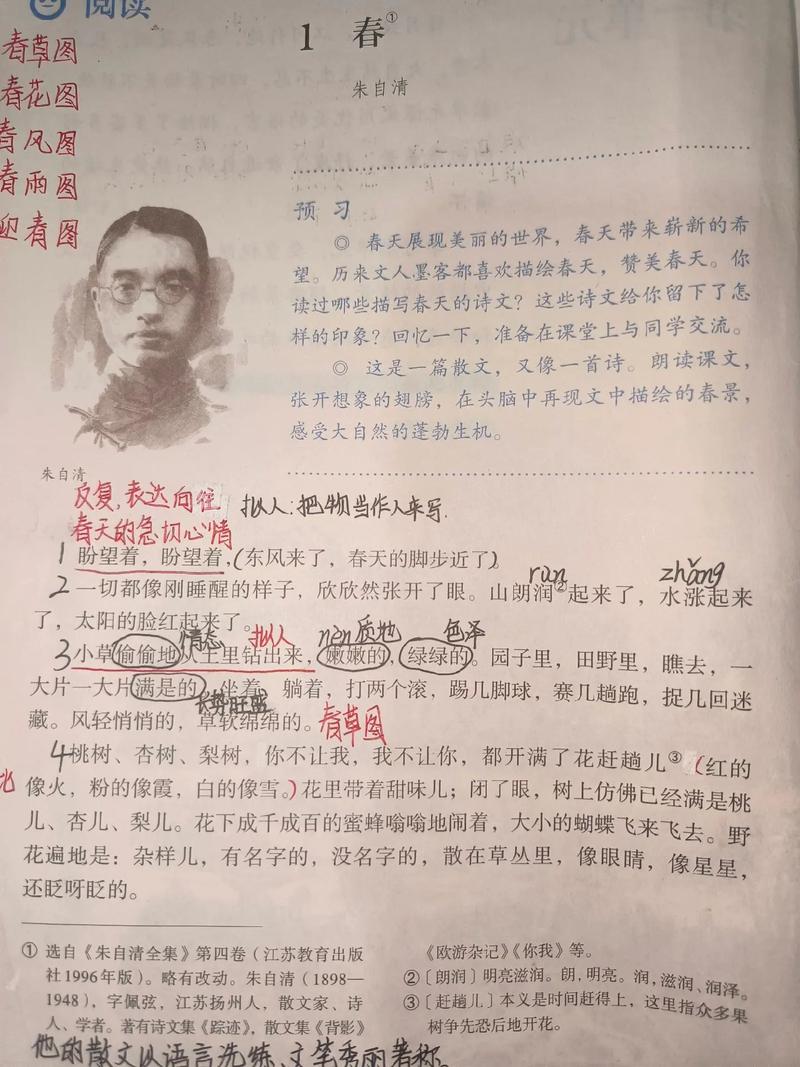 阅读
1 春①
朱自清
春草图
春花图
春风图
春雨图
迎春图
预 习
◎ 春天展现美丽的世界，春天带来崭新的希
望。历来文人墨客都喜欢描绘春天，赞美春天。你
读过哪些描写春天的诗文？这些诗文给你留下了怎
样的印象？回忆一下，准备在课堂上与同学交流。
◎ 这是一篇散文，又像一首诗。朗读课文，
张开想象的翅膀，在头脑中再现文中描绘的春景，
感受大自然的蓬勃生机。
朱自清
反复，表达向往
春天的急切心情
拟人：把物当作人来写.
1 盼望着，盼望着，(东风来了，春天的脚步近了)。
rùn zhǎng
2 一切都像刚睡醒的样子，欣欣然张开了眼。山朗润②起来了，水涨起来
了，太阳的脸红起来了。
情态 拟人 nèn 质地 色泽
3 小草偷偷地从土里钻出来，嫩嫩的，绿绿的。园子里，田野里，瞧去，一
大片一大片满是的。坐着，躺着，打两个滚，踢几脚球，赛几趟跑，捉几回迷
长势旺盛
藏。风轻悄悄的，草软绵绵的。春草图
4 桃树、杏树、梨树，你不让我，我不让你，都开满了花赶趟儿③（红的
像火，粉的像霞，白的像雪。）花里带着甜味儿；闭了眼，树上仿佛已经满是桃
儿、杏儿、梨儿。花下成千成百的蜜蜂嗡嗡地闹着，大小的蝴蝶飞来飞去。野
花遍地是：杂样儿，有名字的，没名字的，散在草丛里，像眼睛，像星星，
还眨呀眨的。
① 选自《朱自清全集》第四卷（江苏教育出版
社1996年版）。略有改动。朱自清（1898—
1948），字佩弦，江苏扬州人，散文家、诗
人、学者。著有诗文集《踪迹》，散文集《背影》
《欧游杂记》《你我》等。
②〔朗润〕明亮滋润。朗，明亮。润，滋润、润泽。
③〔赶趟儿〕本义是时间赶得上，这里指众多果
树争先恐后地开花。
他的散文以语言洗练、文笔秀丽著称。